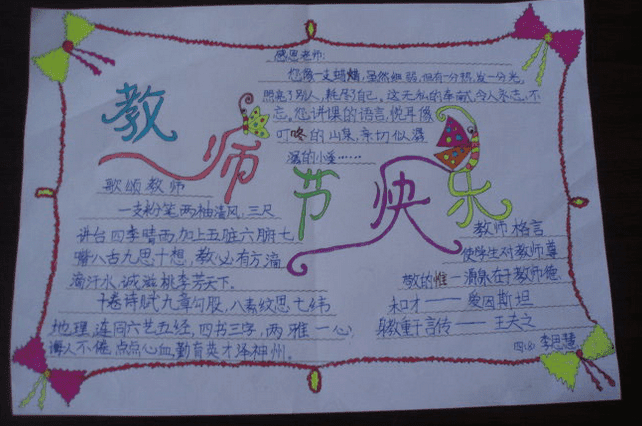 教师节快乐
感恩老师:
您像一支蜡烛,虽然细弱,但有一分热,发一分光,
照亮了别人,耗尽了自己。这无私的奉献,令人永志不
忘。您讲课的语言,悦耳像
叮咚的山泉,亲切似潺
潺的小溪……
歌颂教师
一支粉笔,两袖清风,三尺
讲台四季晴雨,加上五脏六腑七
嘴八舌九思十想,教必有方,滴
滴汗水,诚滋桃李芳天下.
十卷诗赋九章勾股,八索纹思七纬
地理,连同六艺五经,四书三字,两雅一心,
诲人不倦,点点心血,勤育英才泽神州。
教师格言
使学生对教师尊
敬的惟一源泉在于教师德
和才——爱因斯坦
身教重于言传——王夫之